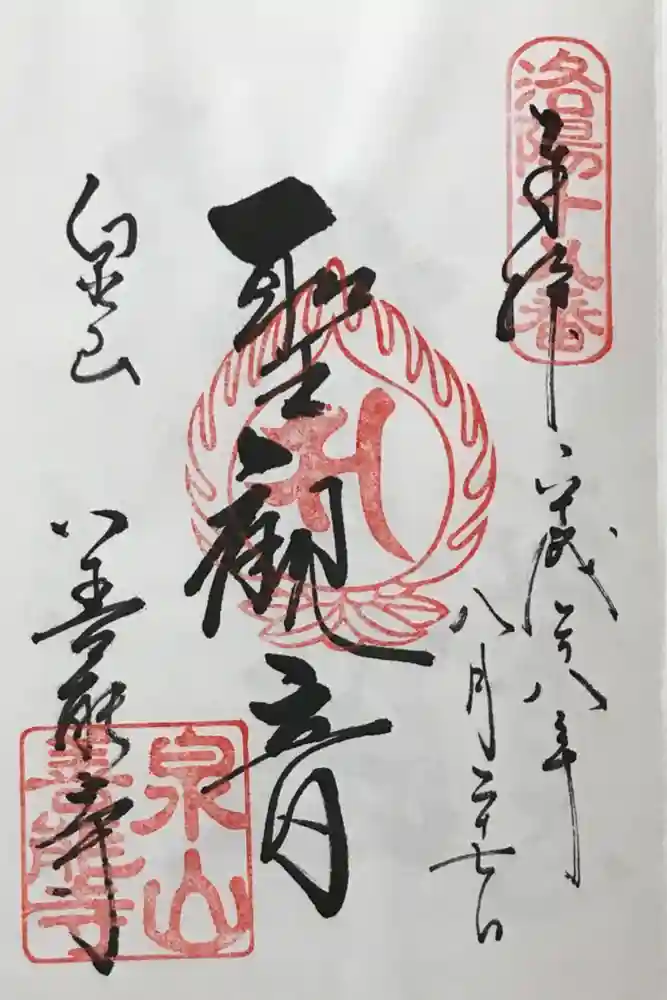 洛陽十八番
奉拝
平成廿八年
八月二十七日
聖観音
泉山
善能寺
泉山
善能寺